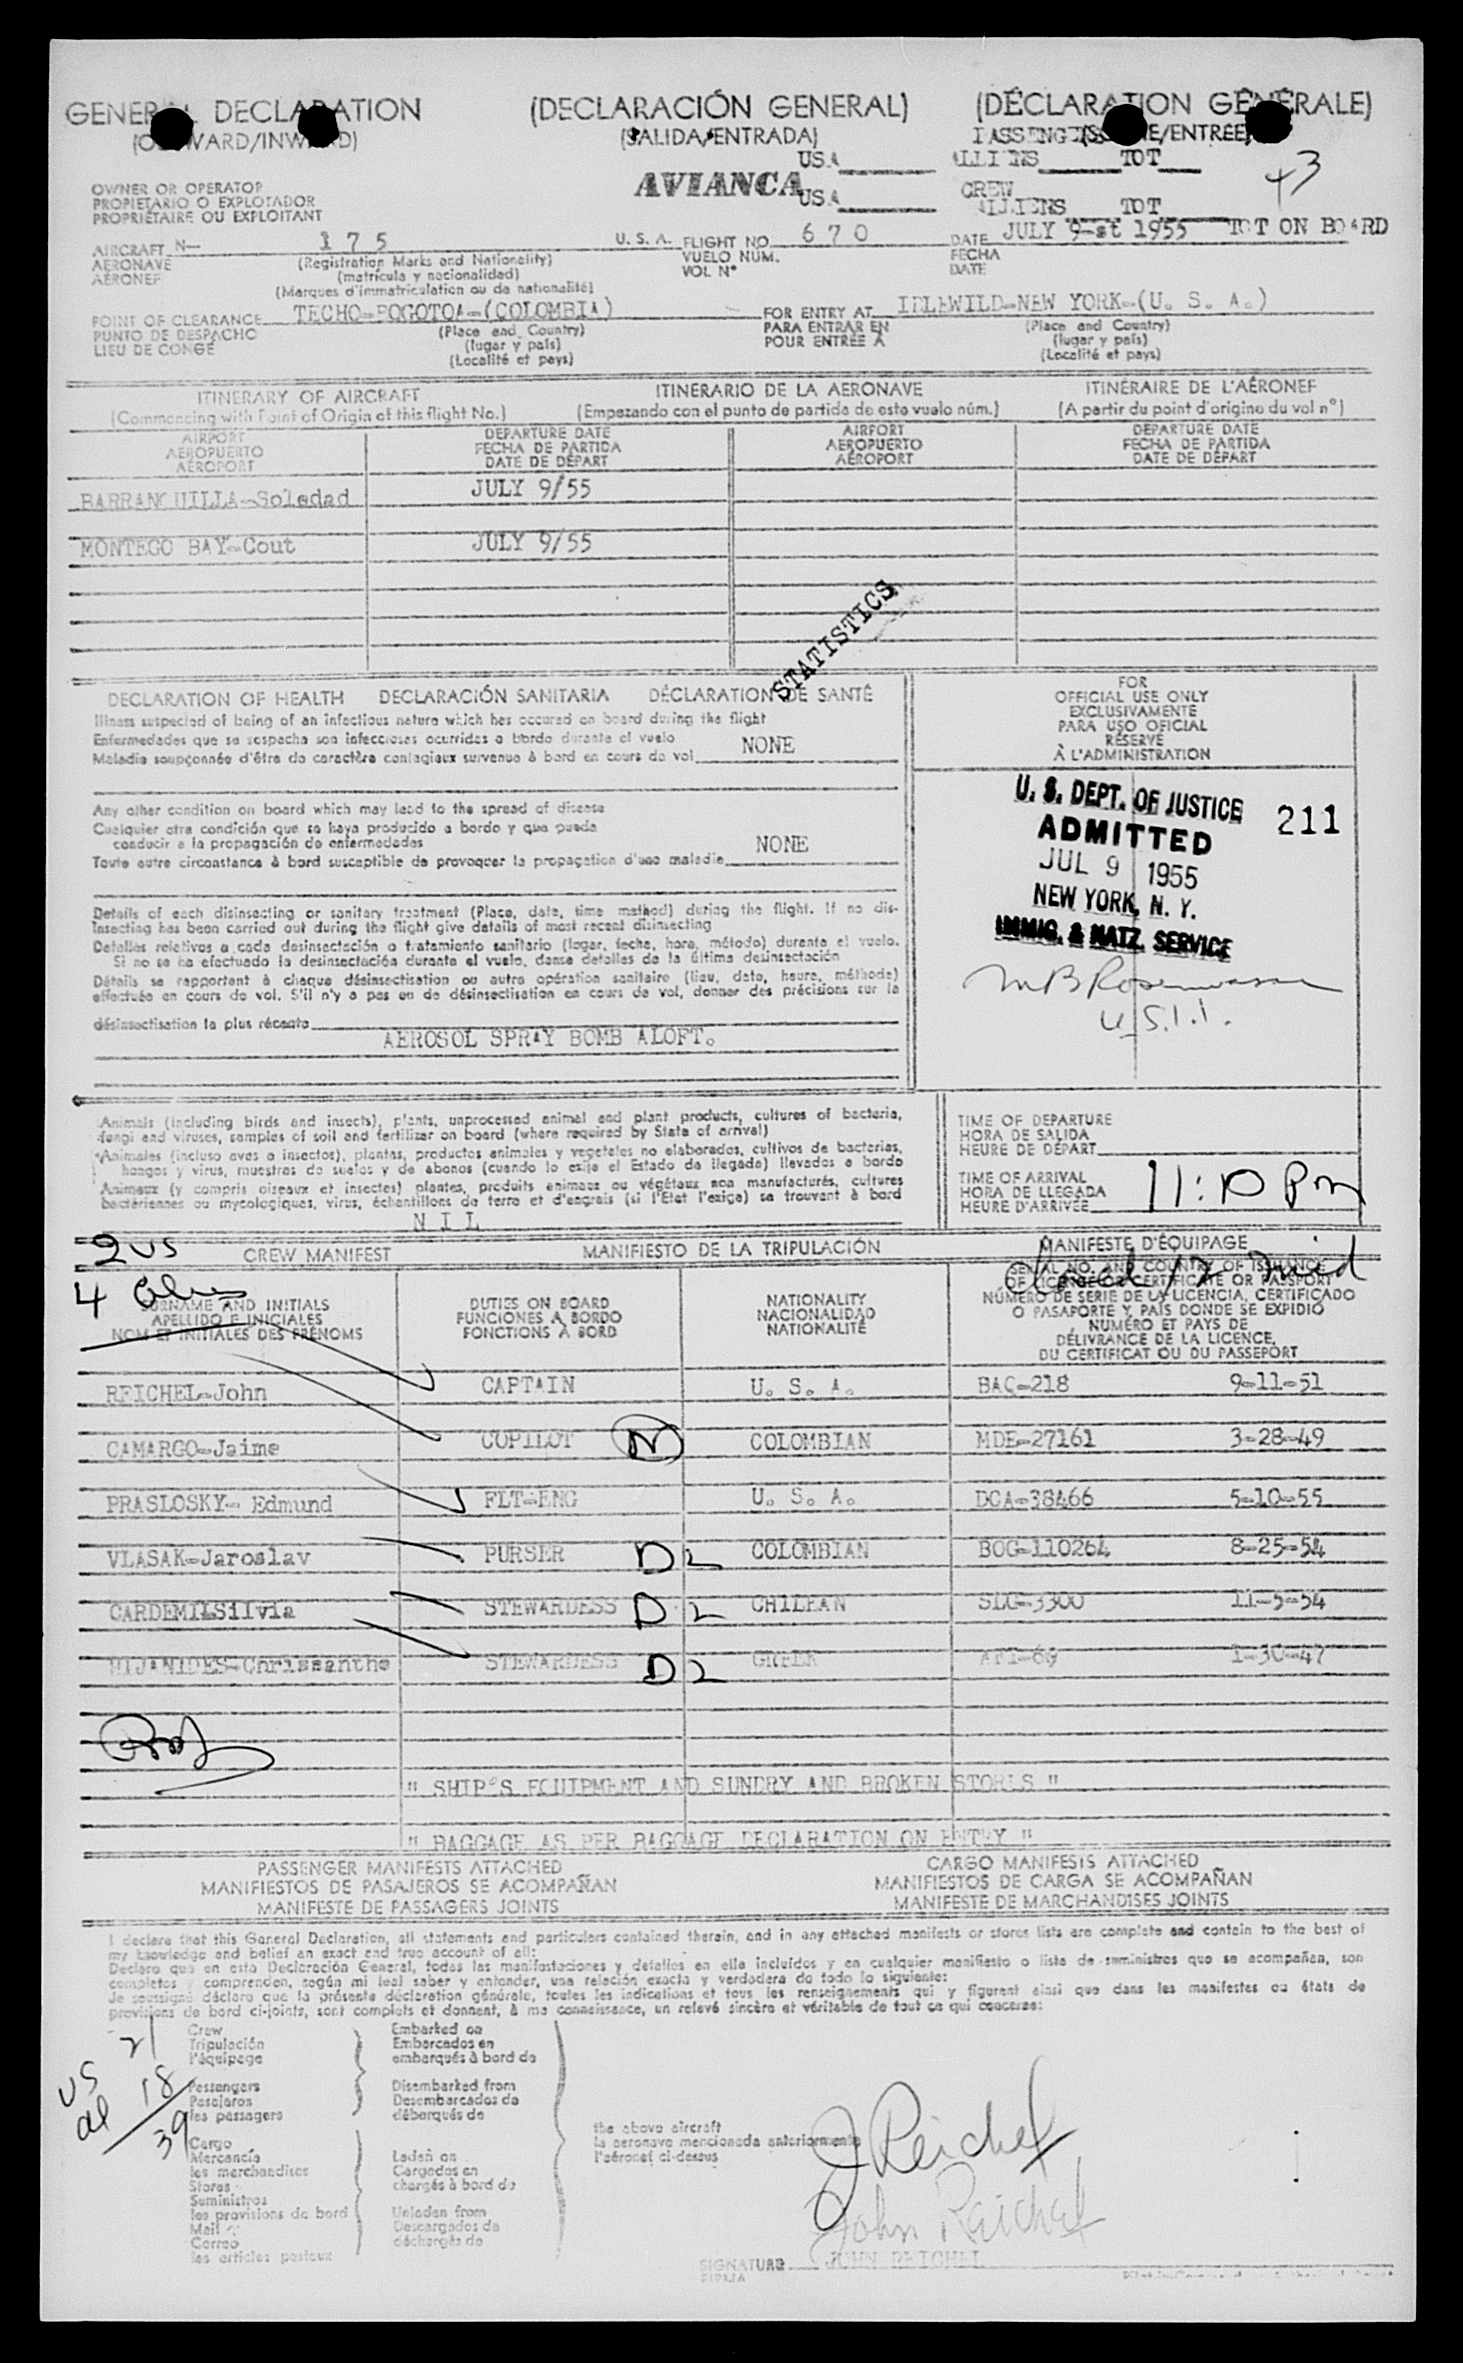 GENERAL DECLARATION (DECLARACIÓN GENERAL) (DÉCLARATION GÉNÉRALE)
(OUTWARD/INWARD) (SALIDA/ENTRADA) /ENTRÉE)
USA ALLIENS TOT 43
OWNER OR OPERATOR AVIANCA USA CREW
PROPIETARIO O EXPLOTADOR ALLIENS TOT
PROPRIÉTAIRE OU EXPLOITANT
AIRCRAFT N— 175 U. S. A. FLIGHT NO. 670 DATE JULY 9-st 1955 TOT ON BOARD
AERONAVE (Registration Marks and Nationality) VUELO NÚM. FECHA
AÉRONEF (matrícula y nacionalidad) VOL N° DATE
(Marques d'immatriculation ou de nationalité)
POINT OF CLEARANCE TECHO-BOGOTOA-(COLOMBIA) FOR ENTRY AT IDLEWILD-NEW YORK-(U. S. A.)
PUNTO DE DESPACHO (Place and Country) PARA ENTRAR EN (Place and Country)
LIEU DE CONGÉ (lugar y país) POUR ENTRÉE À (lugar y país)
(Localité et pays) (Localité et pays)
ITINERARY OF AIRCRAFT ITINERARIO DE LA AERONAVE ITINÉRAIRE DE L'AÉRONEF
(Commencing with Point of Origin of this flight No.) (Empezando con el punto de partida de este vuelo núm.) (A partir du point d'origine du vol n°)
AIRPORT DEPARTURE DATE AIRPORT DEPARTURE DATE
AEROPUERTO FECHA DE PARTIDA AEROPUERTO FECHA DE PARTIDA
AÉROPORT DATE DE DÉPART AÉROPORT DATE DE DÉPART
BARRANQUILLA-Soledad JULY 9/55
MONTEGO BAY-Cout JULY 9/55
STATISTICS
DECLARATION OF HEALTH DECLARACIÓN SANITARIA DÉCLARATION DE SANTÉ
Illness suspected of being of an infectious nature which has occured on board during the flight
Enfermedades que se sospecha son infecciosas ocurridas a bordo durante el vuelo
Maladie soupçonnée d'être de caractère contagieux survenue à bord en cours de vol NONE
Any other condition on board which may lead to the spread of disease
Cualquier otra condición que se haya producido a bordo y que pueda
conducir a la propagación de enfermedades
Toute autre circonstance à bord susceptible de provoquer la propagation d'une maladie NONE
Details of each disinsecting or sanitary treatment (Place, date, time method) during the flight. If no dis-
insecting has been carried out during the flight give details of most recent disinsecting
Detalles relativos a cada desinsectación o tratamiento sanitario (lugar, fecha, hora, método) durante el vuelo.
Si no se ha efectuado la desinsectación durante el vuelo, dense detalles de la última desinsectación
Détails se rapportant à chaque désinsectisation ou autre opération sanitaire (lieu, date, heure, méthode)
effectuée en cours de vol. S'il n'y a pas eu de désinsectisation en cours de vol, donner des précisions sur la
désinsectisation la plus récente
AEROSOL SPRAY BOMB ALOFT.
FOR
OFFICIAL USE ONLY
EXCLUSIVAMENTE
PARA USO OFICIAL
RÉSERVÉ
À L'ADMINISTRATION
U. S. DEPT. OF JUSTICE 211
ADMITTED
JUL 9 1955
NEW YORK, N. Y.
IMMIG. & NATZ. SERVICE
U.S.I.I.
Animals (including birds and insects), plants, unprocessed animal and plant products, cultures of bacteria,
fungi and viruses, samples of soil and fertilizer on board (where required by State of arrival)
Animales (incluso aves o insectos), plantas, productos animales y vegetales no elaborados, cultivos de bacterias,
hongos y virus, muestras de suelos y de abonos (cuando lo exija el Estado de llegada) llevados a bordo
Animaux (y compris oiseaux et insectes) plantes, produits animaux ou végétaux non manufacturés, cultures
bactériennes ou mycologiques, virus, échantillons de terre et d'engrais (si l'Etat l'exige) se trouvant à bord
N I L
TIME OF DEPARTURE
HORA DE SALIDA
HEURE DE DÉPART
TIME OF ARRIVAL
HORA DE LLEGADA
HEURE D'ARRIVÉE 11:10 Pm
2 US
CREW MANIFEST MANIFIESTO DE LA TRIPULACIÓN MANIFESTE D'ÉQUIPAGE
4
SURNAME AND INITIALS DUTIES ON BOARD NATIONALITY SERIAL NO. AND COUNTRY OF ISSUANCE
APELLIDO E INICIALES FUNCIONES A BORDO NACIONALIDAD OF LICENCE OR CERTIFICATE OR PASSPORT
NOM ET INITIALES DES PRÉNOMS FONCTIONS À BORD NATIONALITÉ NÚMERO DE SERIE DE LA LICENCIA, CERTIFICADO
O PASAPORTE Y PAÍS DONDE SE EXPIDIÓ
NUMÉRO ET PAYS DE
DÉLIVRANCE DE LA LICENCE,
DU CERTIFICAT OU DU PASSEPORT
REICHEL-John CAPTAIN U. S. A. BAQ-218 9-11-51
CAMARGO-Jaime COPILOT N COLOMBIAN MDE-27161 3-28-49
PRASLOSKY- Edmund FLT-ENG U. S. A. DCA-38466 5-10-55
VLASAK-Jaroslav PURSER D 2 COLOMBIAN BOG-110264 8-25-54
CARDEMILSilvia STEWARDESS D 2 CHILEAN SDG-3300 11-5-54
MIJANIDES-Chrissanthe STEWARDESS D 2 GREEK 1-30-47
" SHIP'S EQUIPMENT AND SUNDRY AND BROKEN STORES "
" BAGGAGE AS PER BAGGAGE DECLARATION ON ENTRY "
PASSENGER MANIFESTS ATTACHED CARGO MANIFESTS ATTACHED
MANIFIESTOS DE PASAJEROS SE ACOMPAÑAN MANIFIESTOS DE CARGA SE ACOMPAÑAN
MANIFESTE DE PASSAGERS JOINTS MANIFESTE DE MARCHANDISES JOINTS
I declare that this General Declaration, all statements and particulars contained therein, and in any attached manifests or stores lists are complete and contain to the best of
my knowledge and belief an exact and true account of all:
Declaro que en esta Declaración General, todas las manifestaciones y detalles en ella incluidos y en cualquier manifiesto o lista de suministros que se acompañan, son
completos y comprenden, según mi leal saber y entender, una relación exacta y verdadera de todo lo siguiente:
Je soussigné déclare que la présente déclaration générale, toutes les indications et tous les renseignements qui y figurent ainsi que dans les manifestes ou états de
provisions de bord ci-joints, sont complets et donnent, à ma connaissance, un relevé sincère et véritable de tout ce qui concerne:
US 21
al 18
39
Crew Embarked on
Tripulación Embarcados en
l'équipage embarqués à bord de
Passengers Disembarked from
Pasajeros Desembarcados de
les passagers débarqués de
the above aircraft
la aeronave mencionada anteriormente
l'aéronef ci-dessus
Cargo
Mercancía Laden on
les marchandises Cargados en
Stores chargés à bord de
Suministros
les provisions de bord Unladen from
Mail Descargados de
Correo déchargés de
les articles postaux
J Reichel
John Reichel
SIGNATURE JOHN REICHEL
FIRMA